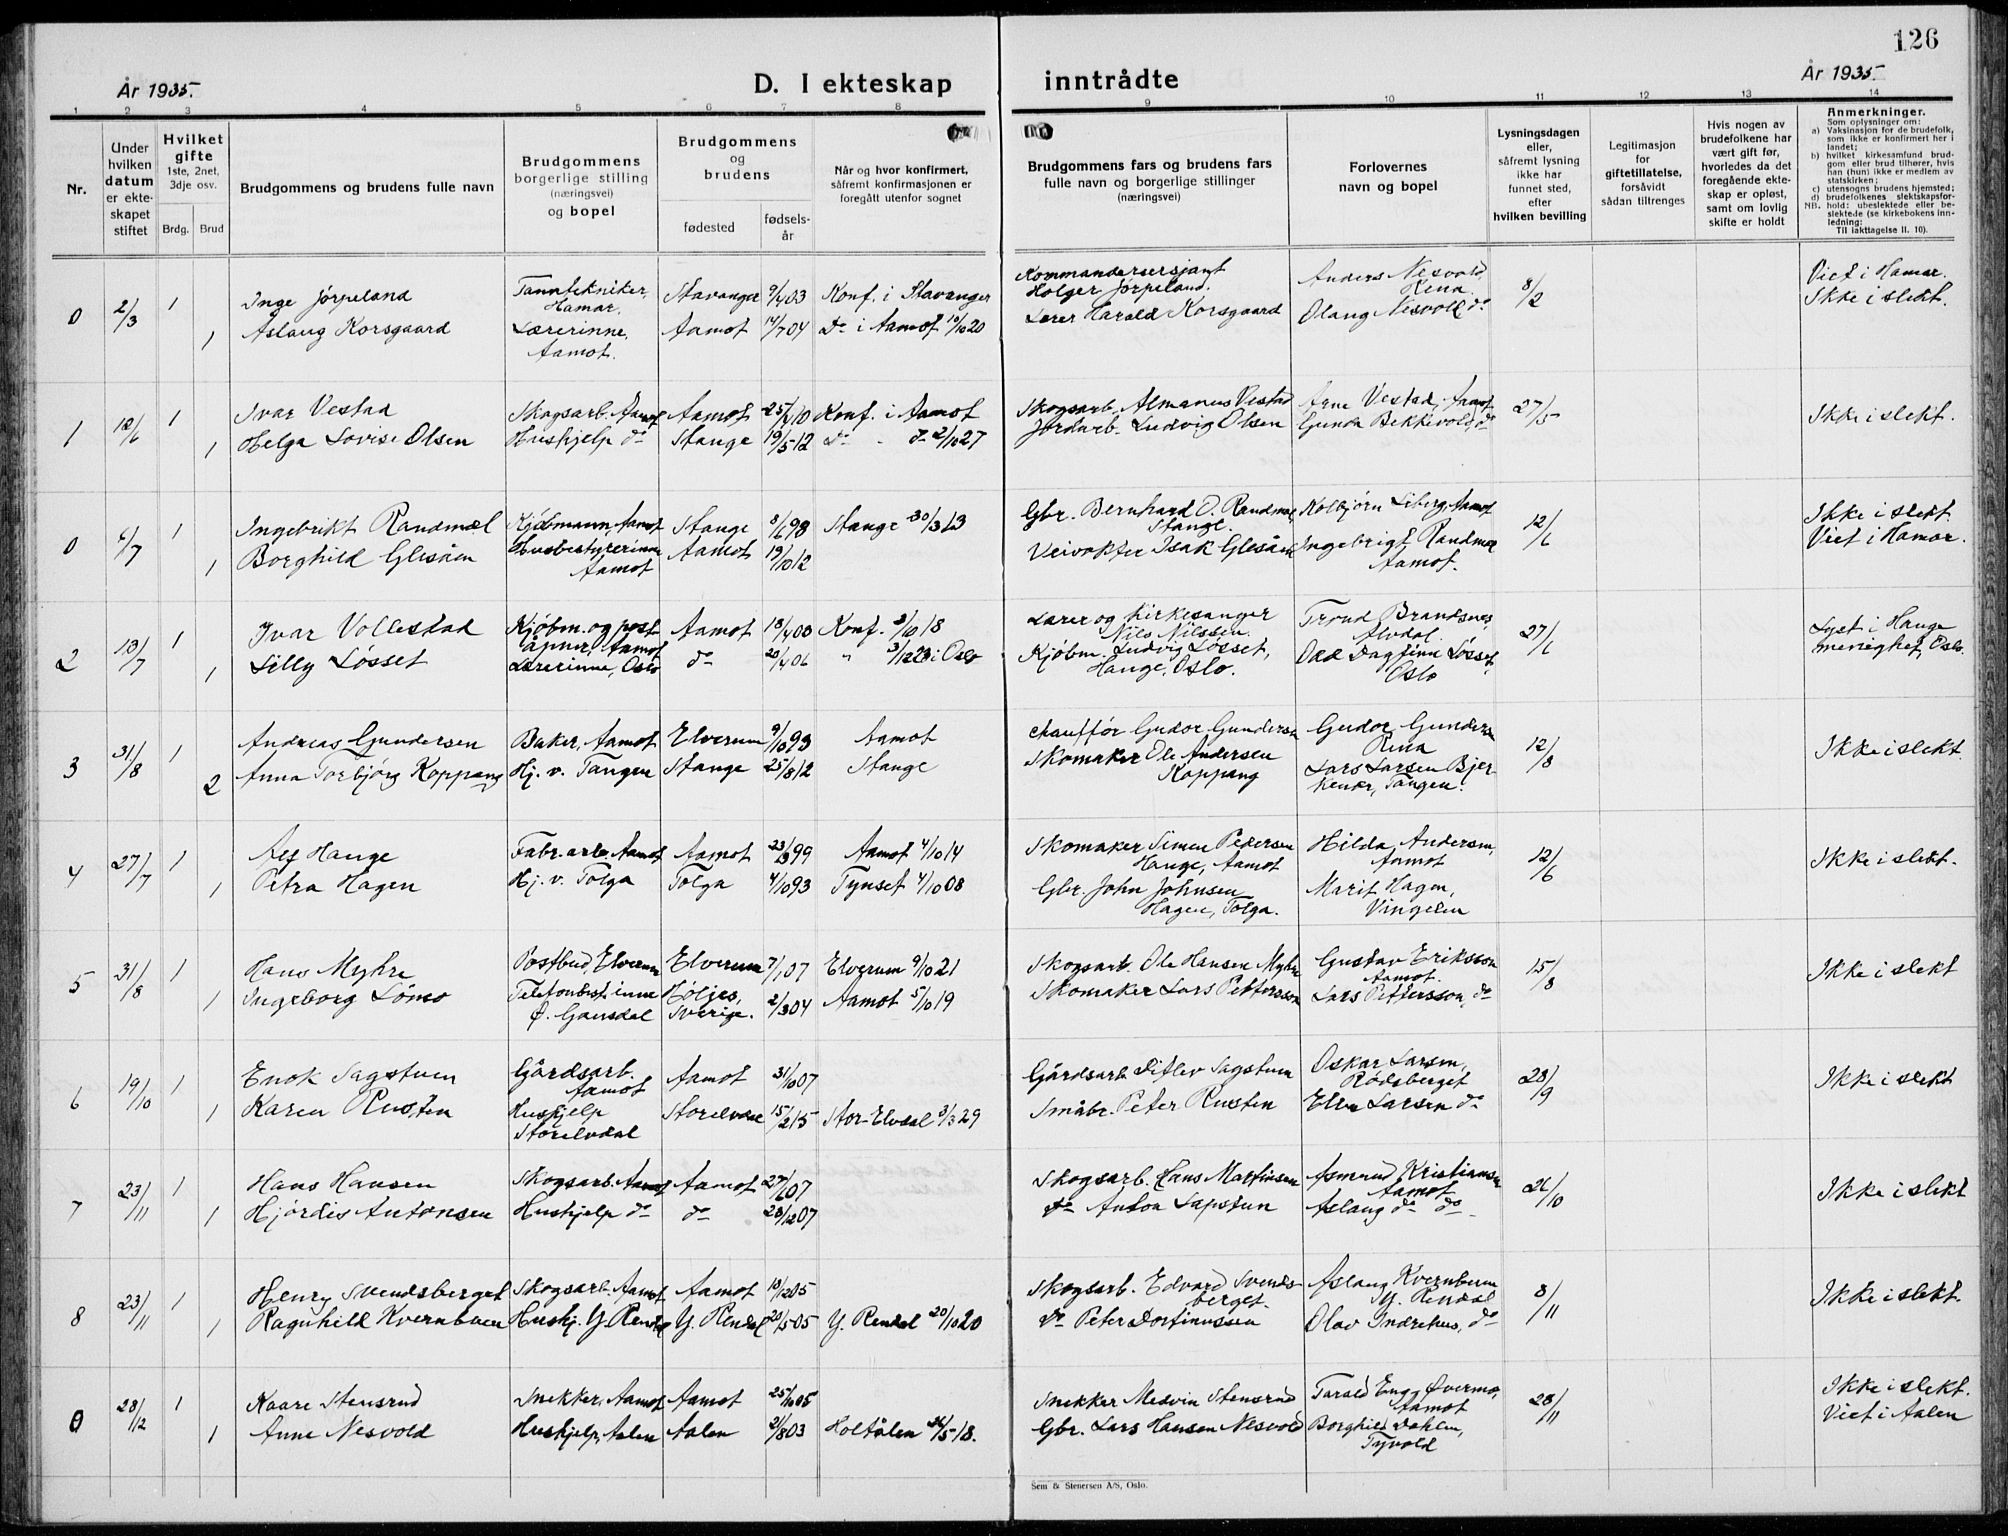 126
År 1935.
D. I ekteskap inntrådte
År 1935.
1 2 3 4 5 6 7 8 9 10 11 12 13 14
Nr.
Under hvilken datum er ekteskapet stiftet
Hvilket gifte 1ste, 2net, 3dje osv.
Brdg. Brud
Brudgommens og brudens fulle navn
Brudgommens borgerlige stilling (næringsvei) og bopel
Brudgommens og brudens
fødested
fødselsår
Når og hvor konfirmert, såfremt konfirmasjonen er foregått utenfor sognet
Brudgommens fars og brudens fars fulle navn og borgerlige stillinger (næringsvei)
Forlovernes navn og bopel
Lysningsdagen eller, såfremt lysning ikke har funnet sted, efter hvilken bevilling
Legitimasjon for giftetillatelse, forsåvidt sådan tiltrenges
Hvis nogen av brudefolkene har vært gift før, hvorledes da det foregående ekteskap er opløst, samt om lovlig skifte er holdt
Anmerkninger.
Som oplysninger om:
a) Vaksinasjon for de brudefolk, som ikke er konfirmert her i landet;
b) hvilket kirkesamfund brudgom eller brud tilhører, hvis han (hun) ikke er medlem av statskirken;
c) utensogns brudens hjemsted;
d) brudefolkenes slektskapsforhold: ubeslektede eller beslektede (se kirkebokens innledning:
NB. Til iakttagelse II. 10).
0 2/3 1 Inge Jørpeland Tanntekniker, Hamar. Stavanger 9/4 03 Konf. i Stavanger Kommandersersjant Holger Jørpeland. Anders Nesvold, Rena 8/2 Viet i Hamar. Ikke i slekt.
1 Aslaug Korsgaard Lærerinne, Aamot. Aamot 14/7 04 Do i Aamot 10/10 20 Lærer Harald Korsgaard Olaug Nesvold do
1 12/6 1 Ivar Vestad Skogsarb. Aamot Aamot 25/4 10 Konf. i Aamot Skogsarb. Almanus Vestad Arne Vestad, Aamot 27/5 Ikke i slekt.
1 Helga Lovise Olsen Hushjelp do Stange 19/5 12 Do - do 2/10 27 Jordarb. Ludvig Olsen Gunda Bekkevold, do
0 6/7 1 Ingebrikt Randmæl Kjøbmann, Aamot Stange 8/6 98 Stange 30/3 13 Gbr. Bernhard O. Randmæl, Stange. Kolbjørn Liberg, Aamot 12/6 Ikke i slekt Viet i Hamar.
1 Borghild Glesåen Husbestyrerinne Aamot Aamot 19/10 12 Veivokter Isak Glesåen Ingebrigt Randmæl Aamot.
2 13/7 1 Ivar Vollestad Kjøbm. og poståpner, Aamot Aamot 18/4 00 Konf. 2/10 18 Lærer og Kirkesanger Nils Nilssen. Trond Brandsnes, Alvdal. 27/6 Lyst i Hauge menighet, Oslo.
1 Lilly Løsset Lærerinne, Oslo do 20/4 06 " 3/12 22 i Oslo Kjøbm. Ludvig Løsset, Hauge, Oslo. Odd Dagfinn Løsset, Oslo
3 31/8 1 Andreas Gundersen Baker, Aamot Elverum 9/10 93 Aamot Chauffør Gudor Gundersen Gudor Gundersen Rena 12/8 Ikke i slekt
2 Anna Torbjørg Koppang Hj. v. Tangen Stange 25/8 12 Stange Skomaker Ole Andersen Koppang Lars Larsen Bjerkenær, Tangen.
4 27/7 1 Alf Hauge Fabr. arb. Aamot Aamot 23/ 99 Aamot 4/10 14 Skomaker Simen Pedersen Hauge, Aamot Hilda Andersen, Aamot 12/6 Ikke i slekt.
1 Petra Hagen Hj. v. Tolga Tolga 4/10 93 Tynset 4/10 08 Gbr. John Johnsen Hagen, Tolga. Marit Hagen, Vingelen
5 31/8 1 Hans Myhre Postbud, Elverum Elverum 7/1 07 Elverum 9/10 21 Skogsarb. Ole Hansen Myhre Gustav Eriksson Aamot. 15/8 Ikke i slekt
1 Ingeborg Lømo Telefonbest. inne Ø. Gausdal Höljes, Sverige. 2/3 04 Aamot 5/10 19 Skomaker Lars Pettersson Lars Pettersson, do
6 19/10 1 Enok Sagstuen Gårdsarb. Aamot Aamot 31/10 07 Gårdsarb. Ditlev Sagstuen Oskar Larsen, Rødsberget 28/9 Ikke i slekt
1 Karen Rusten Hushjelp Storelvdal Storelvdal 15/2 15 Stor-Elvdal 3/3 29 Småbr. Peter Rusten Ellen Larsen do
7 23/11 1 Hans Hansen Skogsarb. Aamot Aamot 27/6 07 Skogsarb. Hans Martinsen Asmund Kristiansen Aamot 26/10 Ikke i slekt
1 Hjørdis Antonsen Hushjelp do do 28/12 07 do Anton Sapstun Aslaug do do
8 23/11 1 Henry Svendsberget Skogsarb. Aamot Aamot 18/12 05 Skogsarb. Edvard Svendsberget. Aslaug Kvernbuen Y. Rendal 8/11 Ikke i slekt.
1 Ragnhild Kvernbuen Hushj. Y. Rendal Y. Rendal 20/5 05 Y. Rendal 20/10 20 do Peter Dortinussen Olav Indrehus, do
0 28/12 1 Kaare Stensrud Snekker, Aamot Aamot 25/10 05 Snekker Medvin Stensrud Tarald Engg Øvermo, Aamot 28/11 Ikke i slekt. Viet i Aalen
1 Anne Nesvold Hushjelp, Aalen Aalen 21/8 03 Holtålen 26/5 18. Gbr. Lars Hansen Nesvold Borghild Dahlen, Tyvold
Sem & Stenersen A/S, Oslo.